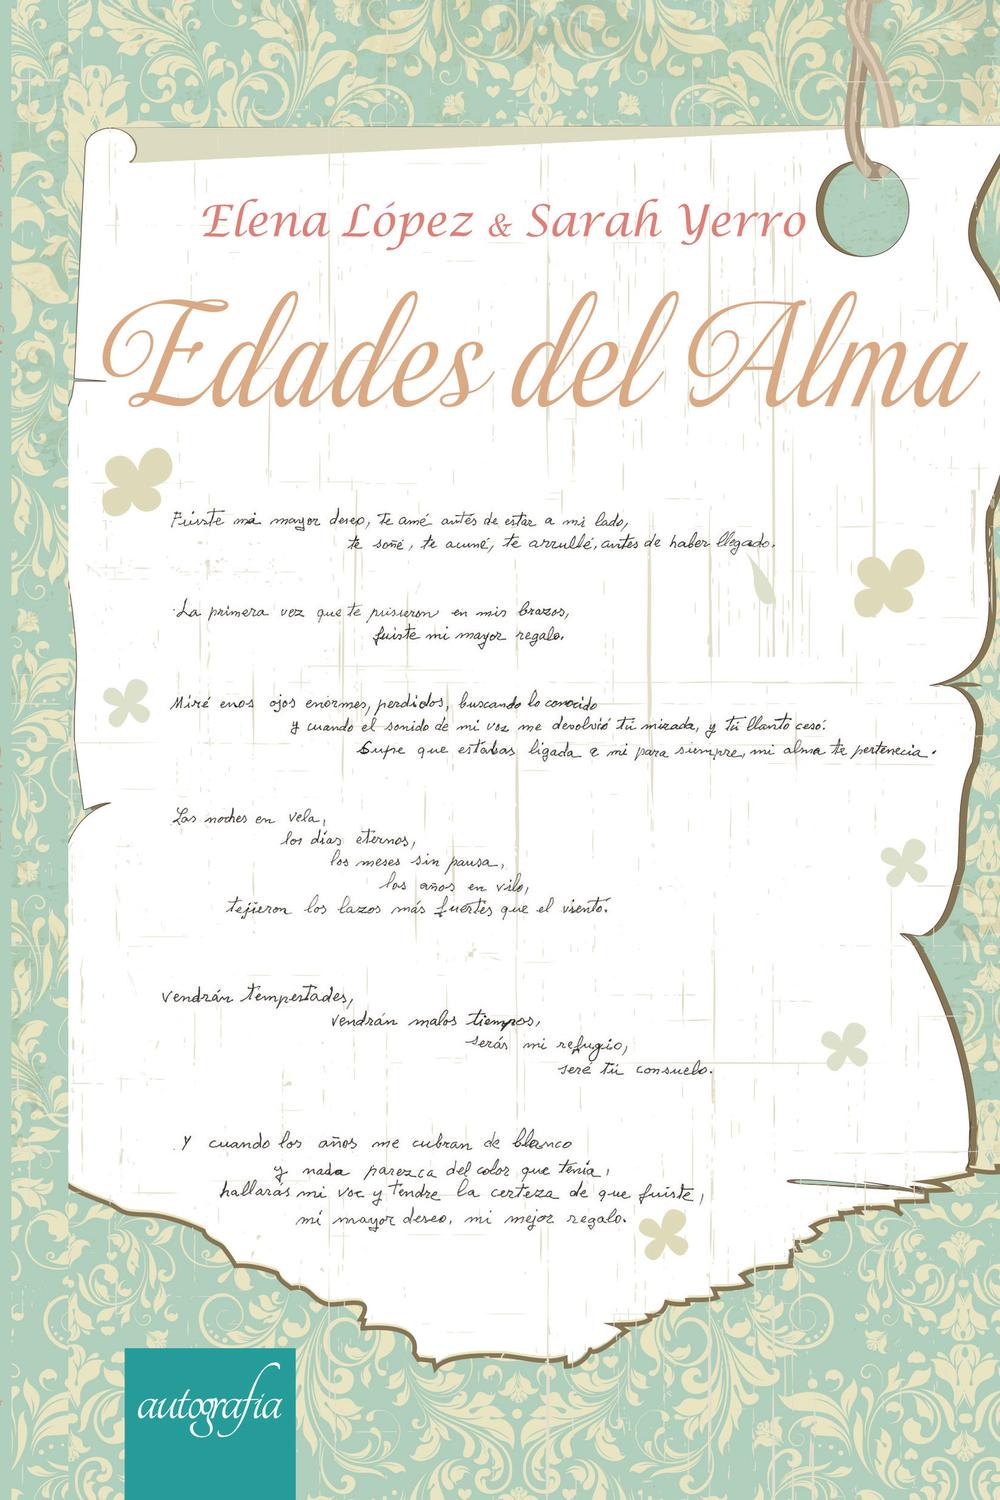 Elena López & Sarah Yerro
Edades del Alma
Fuiste mi mayor deseo, te amé antes de estar a mi lado,
te soñé, te acuné, te arrullé, antes de haber llegado.
La primera vez que te pusieron en mis brazos,
fuiste mi mayor regalo.
Miré enos ojos enormes, perdidos, buscando lo conocido
y cuando el sonido de mi voz me devolvió tú mirada, y tú llanto cesó.
Supe que estabas ligada a mi para siempre, mi alma te pertenecia.
Las noches en vela,
los días eternos,
los meses sin pausa,
los años en vilo,
tejieron los lazos más fuertes que el viento.
Vendrán tempestades,
vendrán malos tiempos,
serás mi refugio,
seré tú consuelo.
Y cuando los años me cubran de blanco
y nada parezca del color que tenía,
hallarás mi voz y tendre la certeza de que fuiste,
mi mayor deseo, mi mejor regalo.
autografía